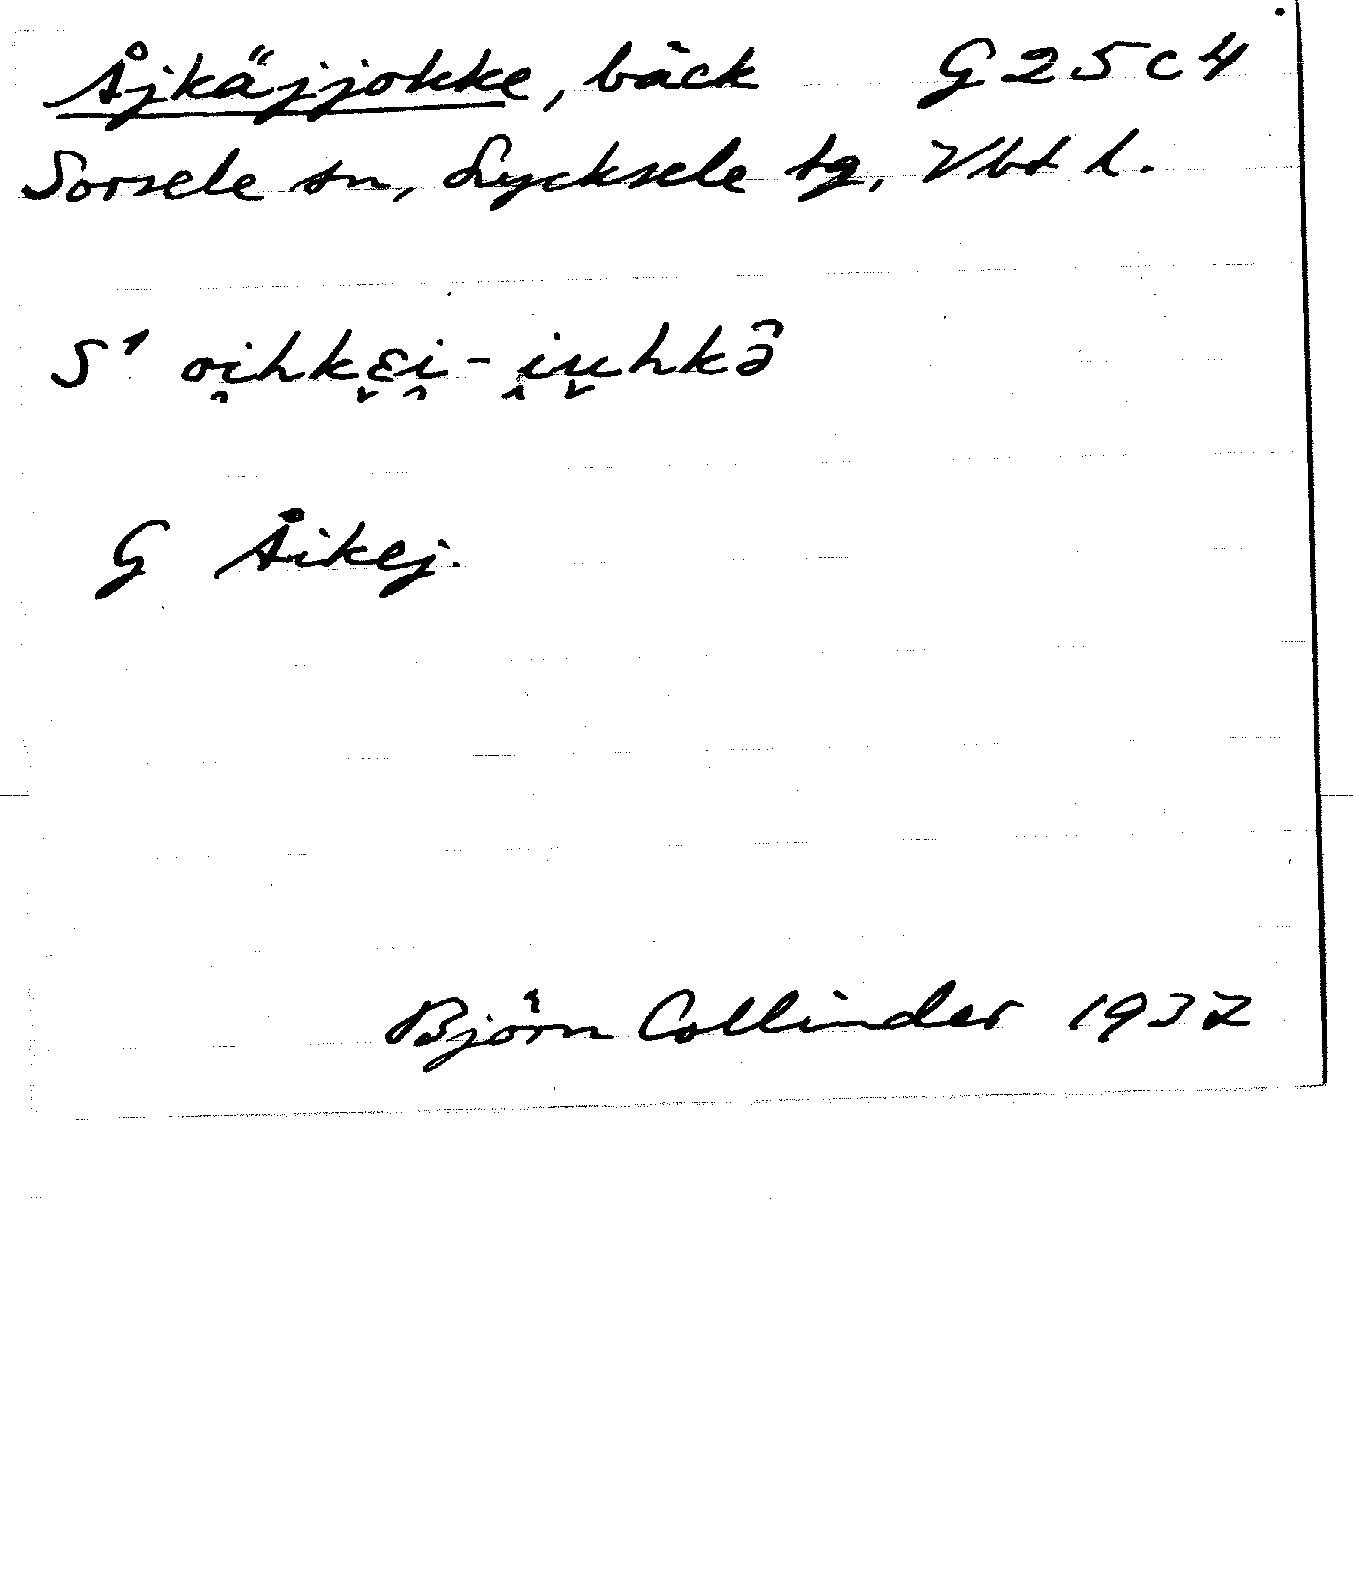 Åjkäjjokke, bäck G 25 c 4
Sorsele sn, Lycksele tg, Vbt l.
S¹ oi̯hkε̬i̯-i̯u̬hkə̑
G Åikej.
Björn Collinder 1937